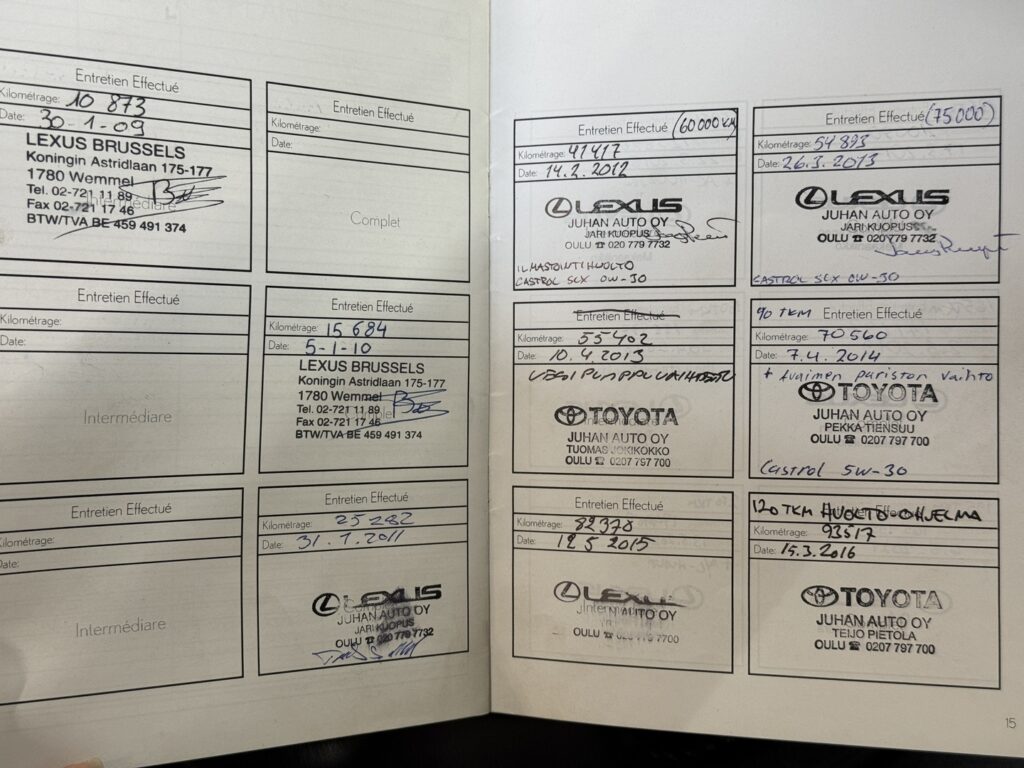 Entretien Effectué
Kilométrage: 10 873
Date: 30-1-09
LEXUS BRUSSELS
Koningin Astridlaan 175-177
1780 Wemmel
Tel. 02-721 11.89
Fax 02-721 17 46
BTW/TVA BE 459 491 374
Entretien Effectué
Kilométrage:
Date:
Complet
Entretien Effectué
Kilométrage:
Date:
Intermédiare
Entretien Effectué
Kilométrage: 15 684
Date: 5-1-10
LEXUS BRUSSELS
Koningin Astridlaan 175-177
1780 Wemmel
Tel. 02-721 11.89
Fax 02-721 17 46
BTW/TVA BE 459 491 374
Entretien Effectué
Kilométrage:
Date:
Intermédiare
Entretien Effectué
Kilométrage: 25 282
Date: 31.1.2011
LEXUS
JUHAN AUTO OY
JARI KUOPUS
OULU ☎ 020 779 7732
Entretien Effectué (60 000 KM)
Kilométrage: 41417
Date: 14.2.2012
LEXUS
JUHAN AUTO OY
JARI KUOPUS
OULU ☎ 020 779 7732
ILMASTOINTIHUOLTO
CASTROL SLX 0W-30
Entretien Effectué (75 000)
Kilométrage: 54 893
Date: 26.3.2013
LEXUS
JUHAN AUTO OY
JARI KUOPUS
OULU ☎ 020 779 7732
CASTROL SLX 0W-30
Entretien Effectué
Kilométrage: 55402
Date: 10.4.2013
VESIPUMPPU VAIHDETTU
TOYOTA
JUHAN AUTO OY
TUOMAS JOKIKOKKO
OULU ☎ 0207 797 700
90 TKM Entretien Effectué
Kilométrage: 70560
Date: 7.4.2014
+ Avaimen pariston vaihto
TOYOTA
JUHAN AUTO OY
PEKKA TIENSUU
OULU ☎ 0207 797 700
Castrol 5W-30
Entretien Effectué
Kilométrage: 82378
Date: 12 5 2015
LEXUS
AUTO OY
OULU ☎ 020 779 7700
120 TKM HUOLTO-OHJELMA
Kilométrage: 93517
Date: 15.3.2016
TOYOTA
JUHAN AUTO OY
TEIJO PIETOLA
OULU ☎ 0207 797 700
15